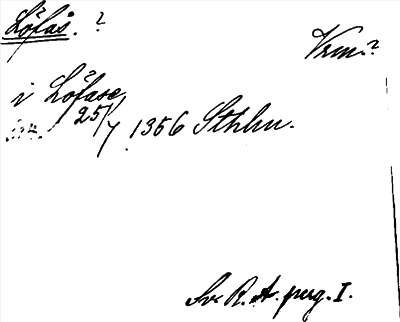 Löfås. ?
Vrm.?
i Löfase
25/7 1356 Sthlm.
Sv. R. A. perg. I.